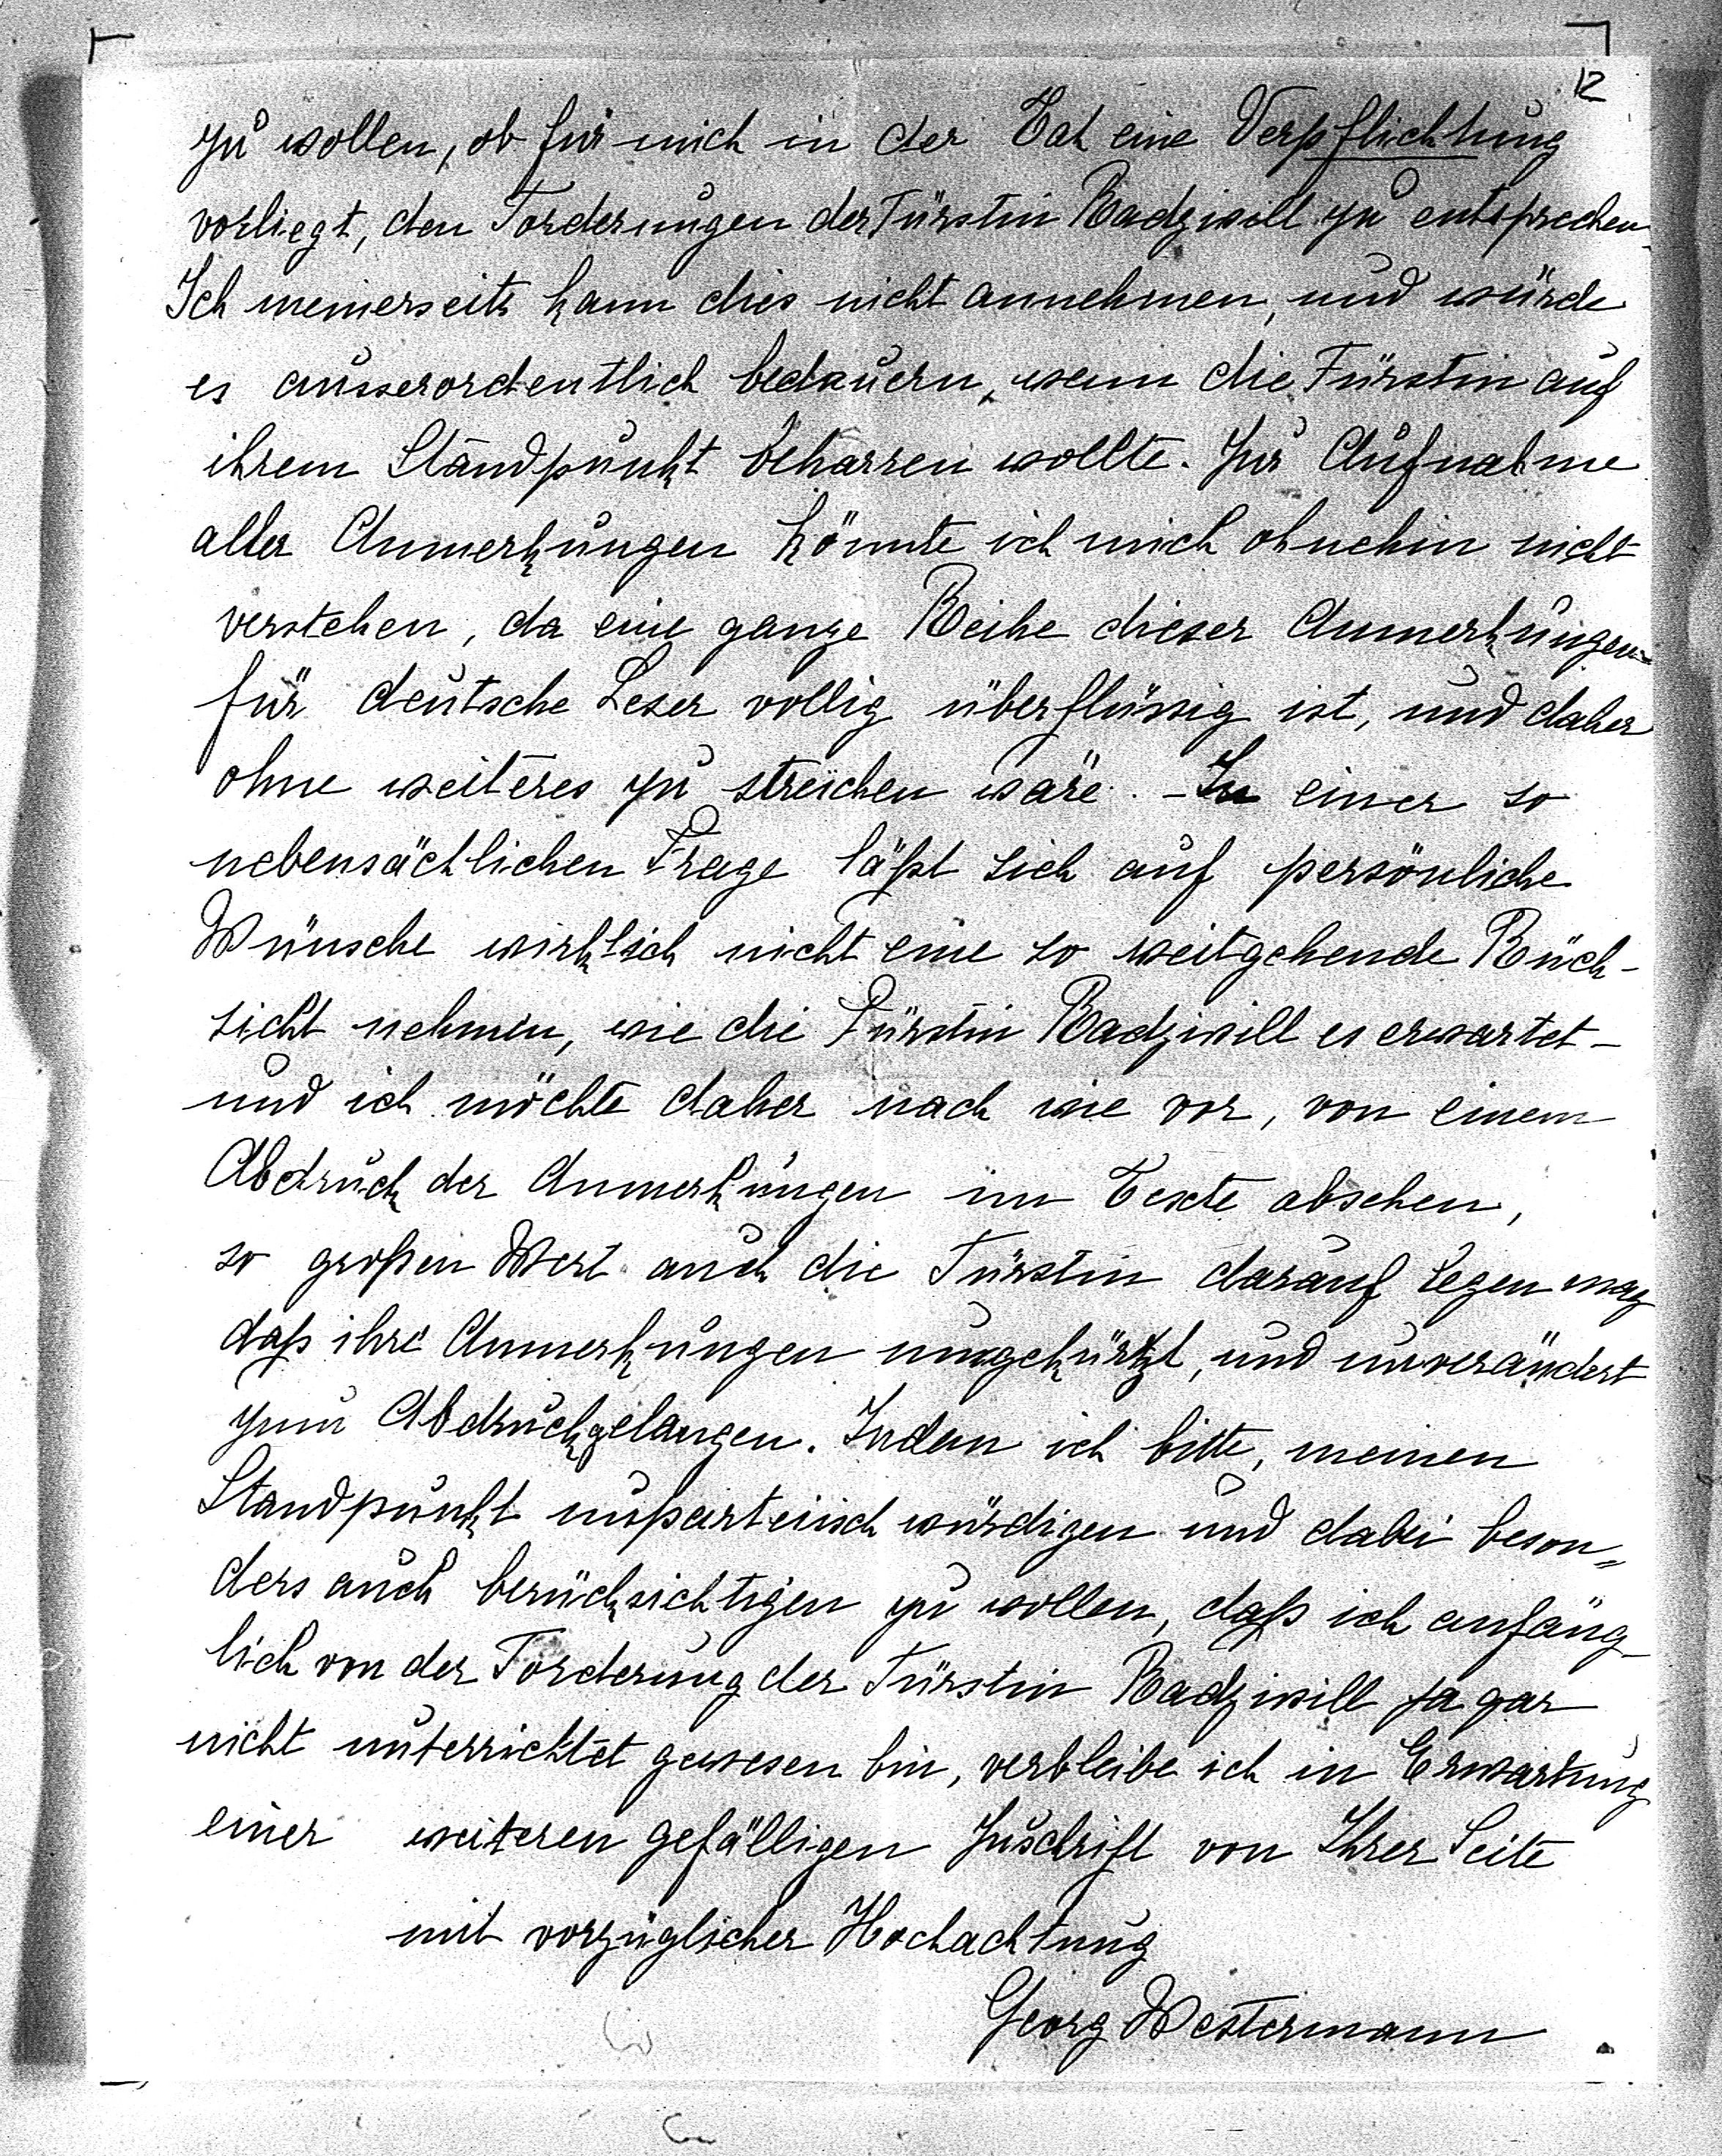 12
zu wollen, ob für mich in der Tat eine Verpflichtung
vorliegt, den Forderungen der Fürstin Radziwill zu entsprechen.
Ich meinerseits kann dies nicht annehmen, und würde
es ausserordentlich bedauern, wenn die Fürstin auf
ihrem Standpunkt beharren wollte. Zur Aufnahme
aller Anmerkungen könnte ich mich ohnehin nicht
verstehen, da eine ganze Reihe dieser Anmerkungen
für deutsche Leser vollig überflüssig ist, und daher
ohne weiteres zu streichen wäre. - In einer so
nebensächlichen Frage läßt sich auf persönliche
Wünsche wirklich nicht eine so weitgehende Rück-
sicht nehmen, wie die Fürstin Radziwill es erwartet -
und ich möchte daher nach wie vor, von einem
Abdruck der Anmerkungen im Texte absehen,
so großen Wert auch die Fürstin darauf legen mag
daß ihre Anmerkungen ungekürtzt, und unverändert
zum Abdruck gelangen. Indem ich bitte, meinen
Standpunkt unparteiisch würdigen und dabei beson=
ders auch berücksichtigen zu wollen, daß ich anfäng-
lich von der Forderung der Fürstin Radziwill ja gar
nicht unterrichtet gewesen bin, verbleibe ich in Erwartung
einer weiteren gefälligen Zuschrift von Ihrer Seite
mit vorzüglicher Hochachtung
Georg Westermann